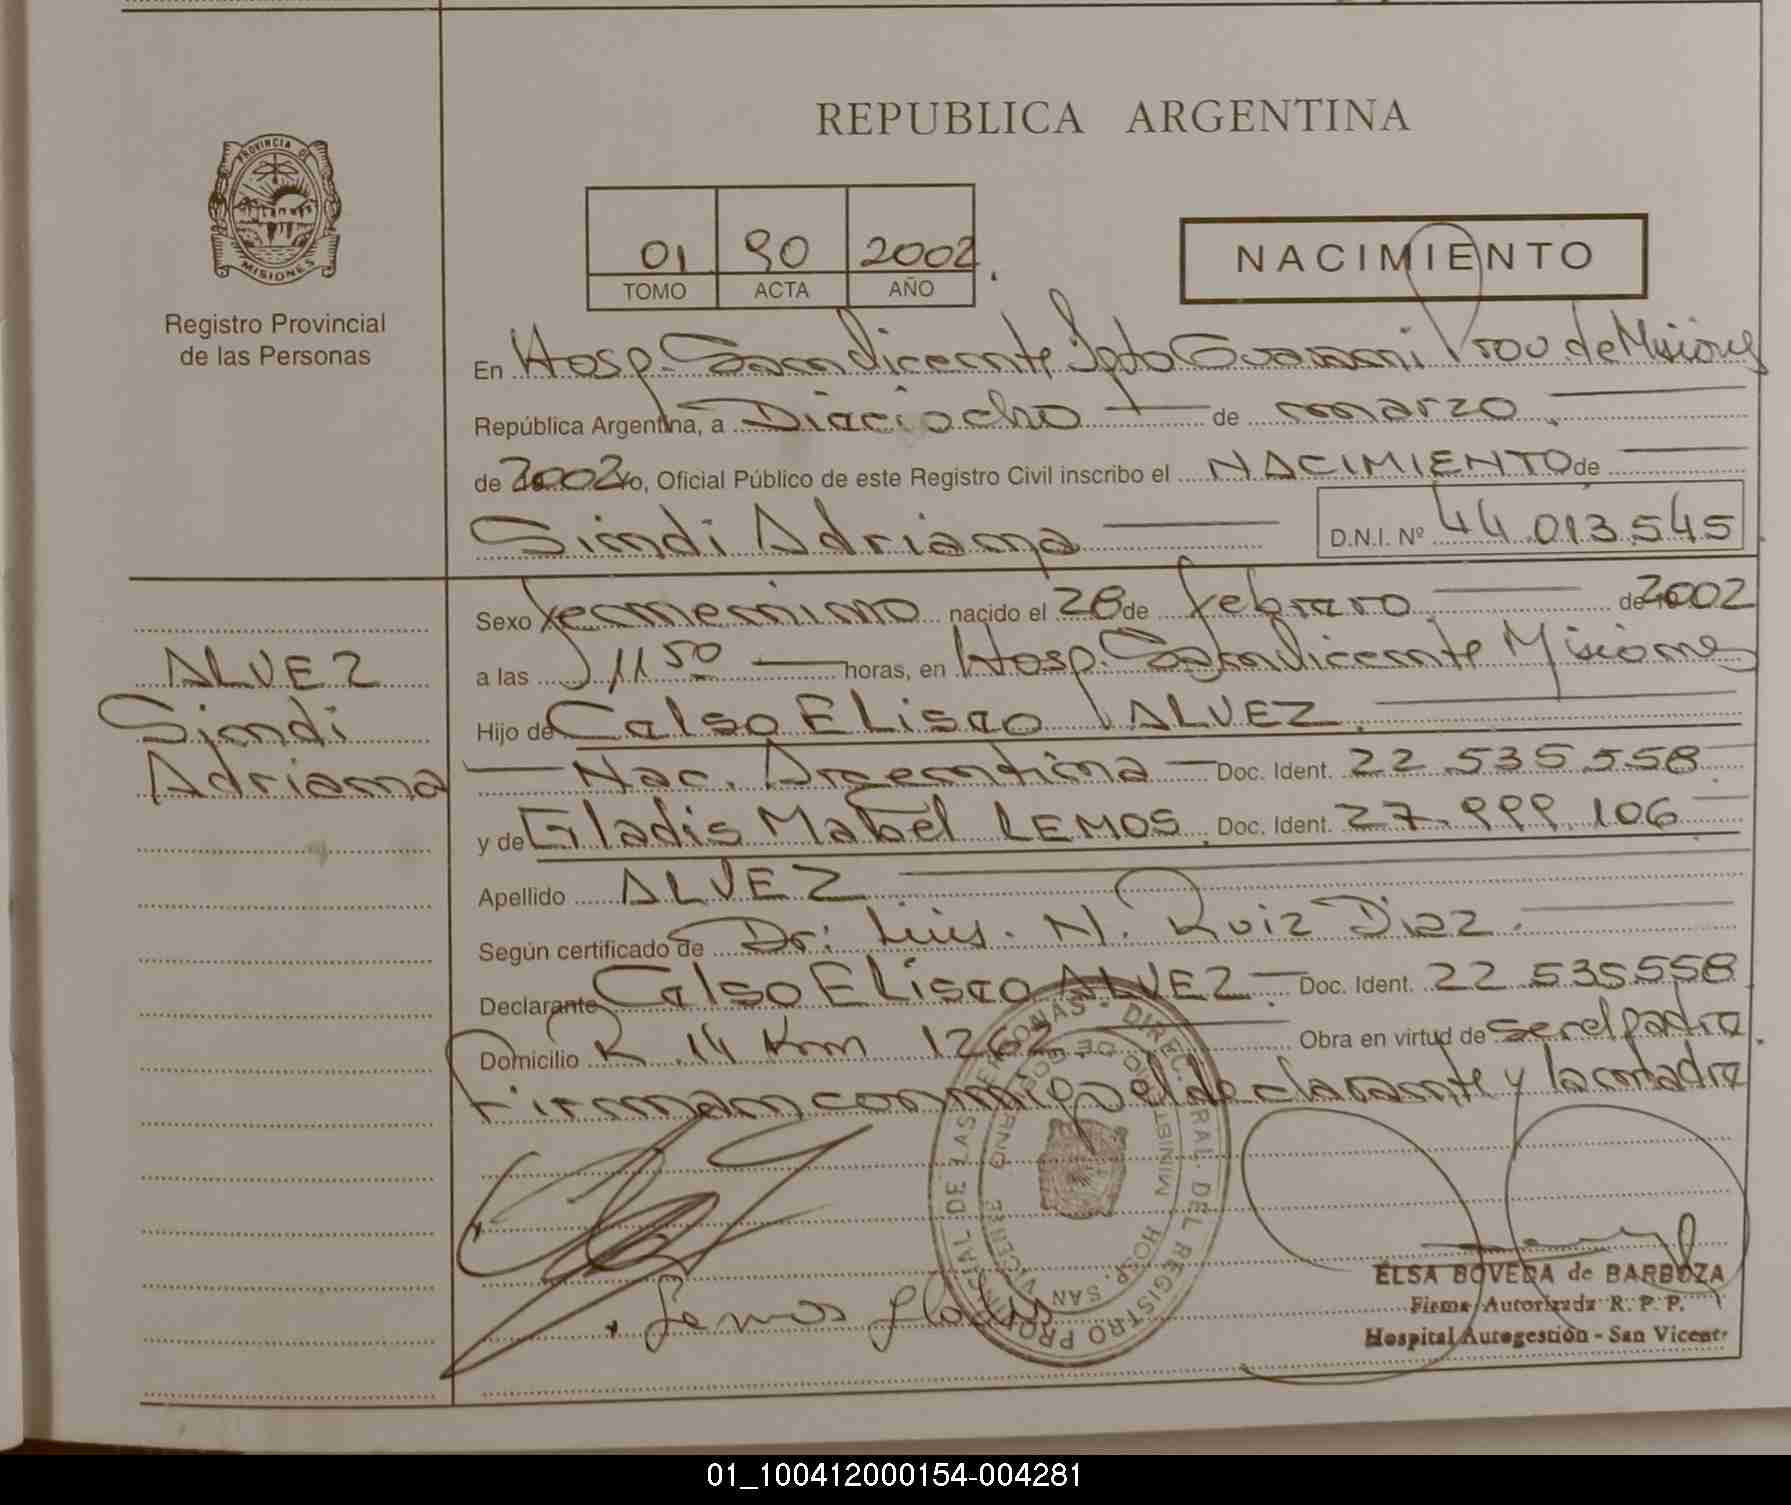 REPUBLICA ARGENTINA
PROVINCIA DE MISIONES
Registro Provincial
de las Personas
01 90 2002.
TOMO ACTA AÑO
NACIMIENTO
En Hosp. San Vicente Dpto Guarani Prov de Misiones
República Argentina, a Dieciocho de marzo
de 2002 Yo, Oficial Público de este Registro Civil inscribo el NACIMIENTO de
Sindi Adriana D.N.I. Nº 44.013.545
ALVEZ
Sindi
Adriana
Sexo femenino nacido el 28 de febrero de 2002
a las 11 50 horas, en Hosp. San Vicente Misiones
Hijo de Celso Eliseo ALVEZ
Nac. Argentina Doc. Ident. 22.535.558
y de Gladis Mabel LEMOS Doc. Ident. 27.999.106
Apellido ALVEZ
Según certificado de Dr. Luis. N. Ruiz Diaz.
Declarante Celso Eliseo ALVEZ Doc. Ident. 22.535558
Domicilio R 14 Km 1262 Obra en virtud de ser el padre
Firman conmigo el declarante y la madre
Lemos Gladis
DIREC RAL. DEL REGISTRO PROVINCIAL DE LAS PERSONAS
MINISTERIO DE GOBIERNO
HOSP. SAN VICENTE
ELSA BOVEDA de BARBOZA
Firma Autorizada R. P. P.
Hospital Autogestión - San Vicente
01_100412000154-004281